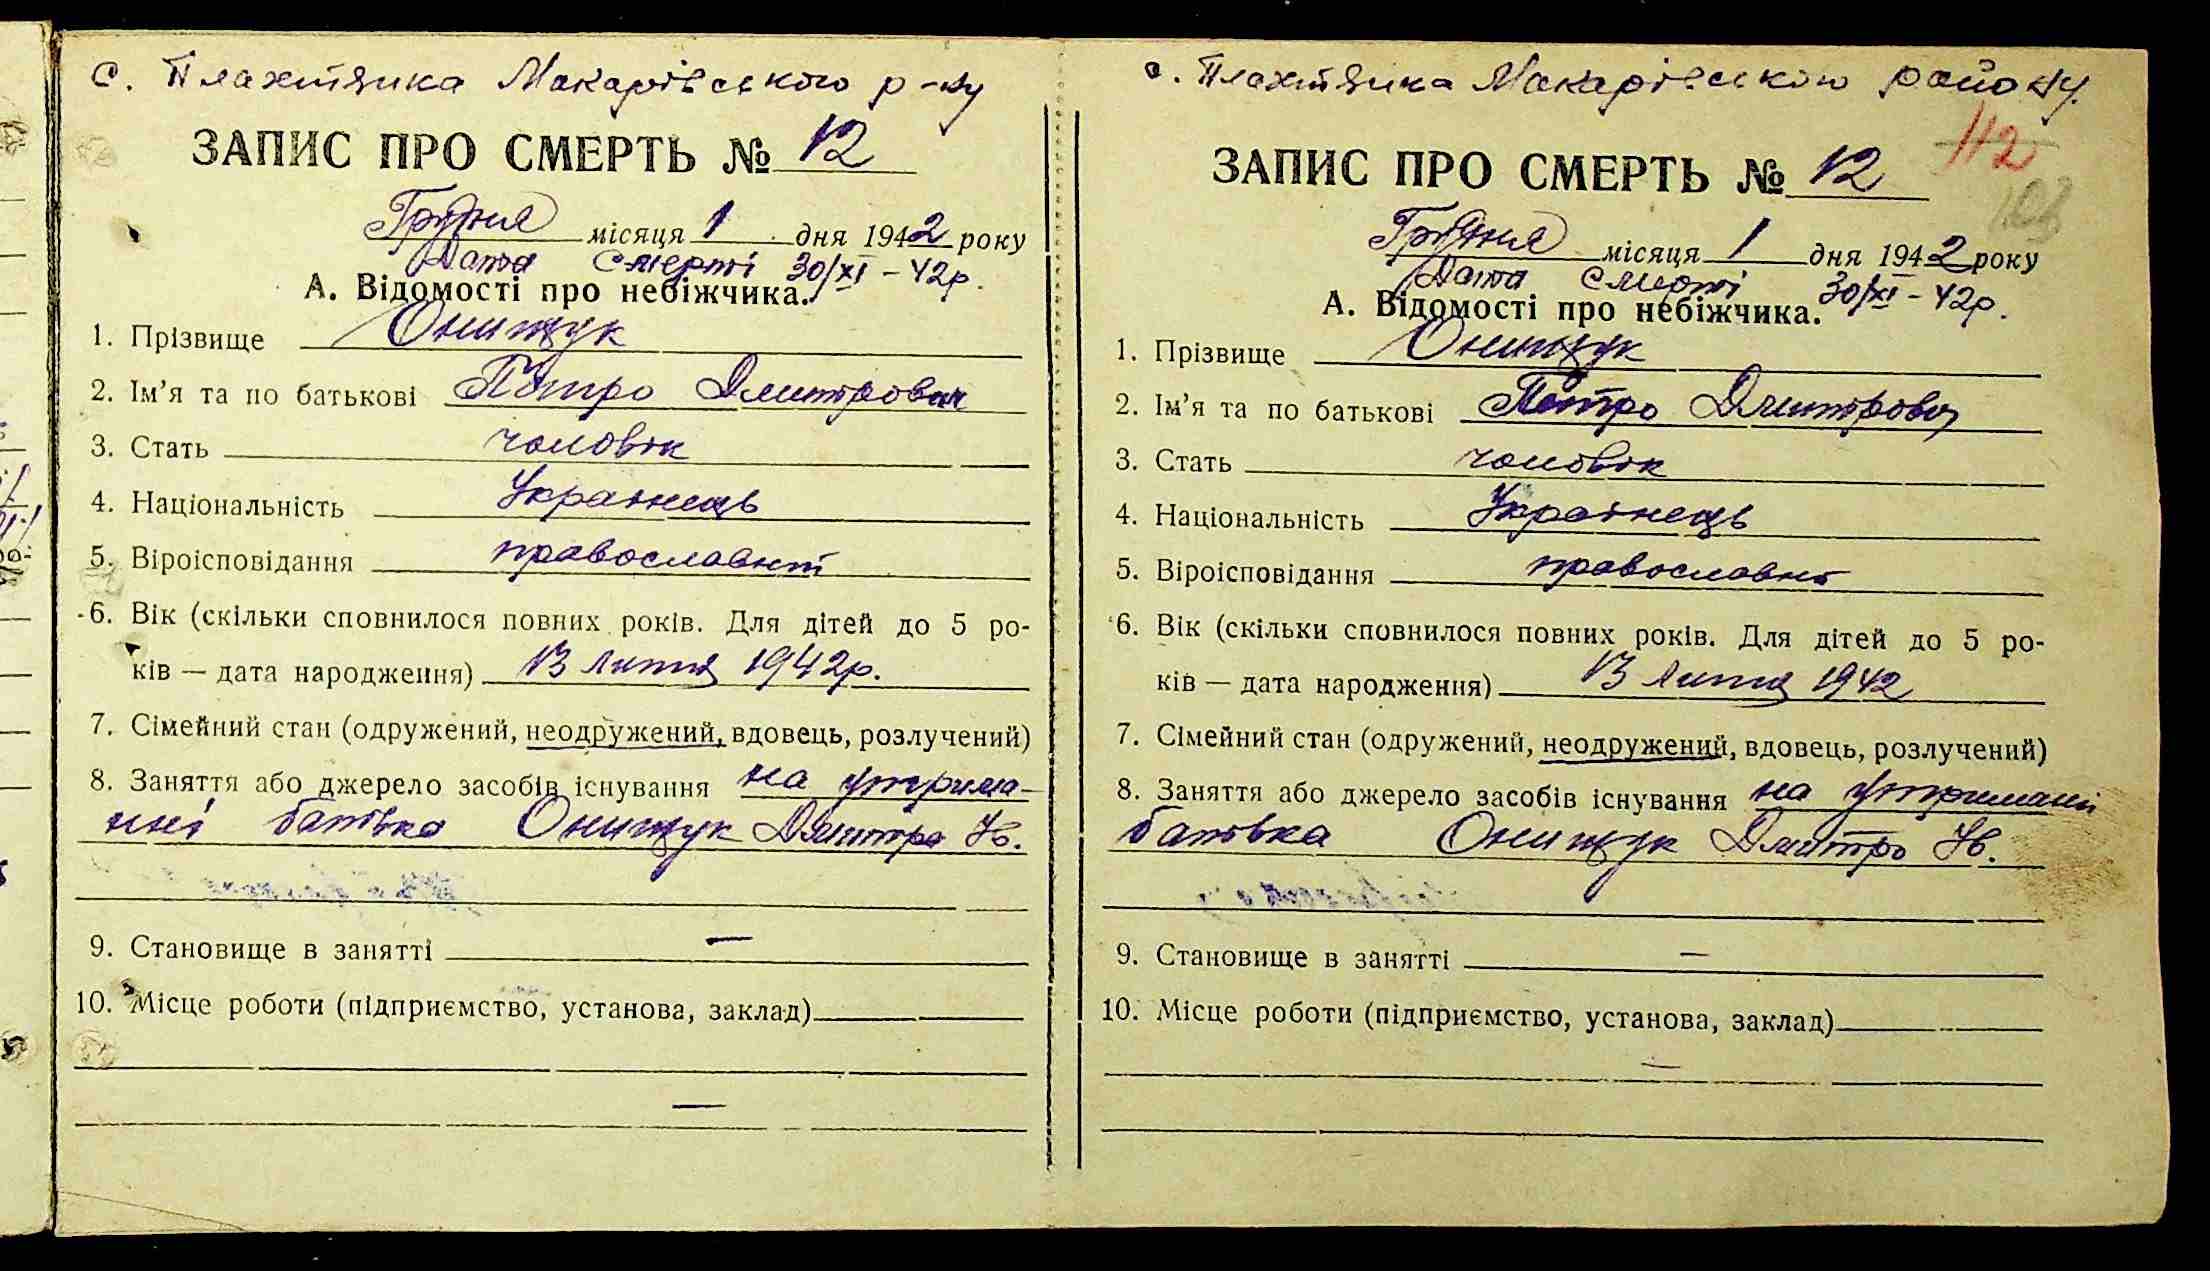 с. Плахтянка Макарівського р-ну
ЗАПИС ПРО СМЕРТЬ № 12
Грудня місяця 1 дня 1942 року
Дата смерті 30/XI - 42р.
А. Відомості про небіжчика.
1. Прізвище Онищук
2. Ім'я та по батькові Петро Дмитрович
3. Стать чоловік
4. Національність Українець
5. Віроісповідання православний
6. Вік (скільки сповнилося повних років. Для дітей до 5 ро-
ків — дата народження) 13 липня 1942р.
7. Сімейний стан (одружений, неодружений, вдовець, розлучений)
8. Заняття або джерело засобів існування на утрима-
нні батька Онищук Дмитро Ів.
9. Становище в занятті —
10. Місце роботи (підприємство, установа, заклад)
—
с. Плахтянка Макарівського району.
112
ЗАПИС ПРО СМЕРТЬ № 12
Грудня місяця 1 дня 1942 року
Дата смерті 30/XI - 42р.
А. Відомості про небіжчика.
1. Прізвище Онищук
2. Ім'я та по батькові Петро Дмитрович
3. Стать чоловік
4. Національність Українець
5. Віроісповідання православний
6. Вік (скільки сповнилося повних років. Для дітей до 5 ро-
ків — дата народження) 13 липня 1942
7. Сімейний стан (одружений, неодружений, вдовець, розлучений)
8. Заняття або джерело засобів існування на утриманні
батька Онищук Дмитро Ів.
9. Становище в занятті —
10. Місце роботи (підприємство, установа, заклад)
—